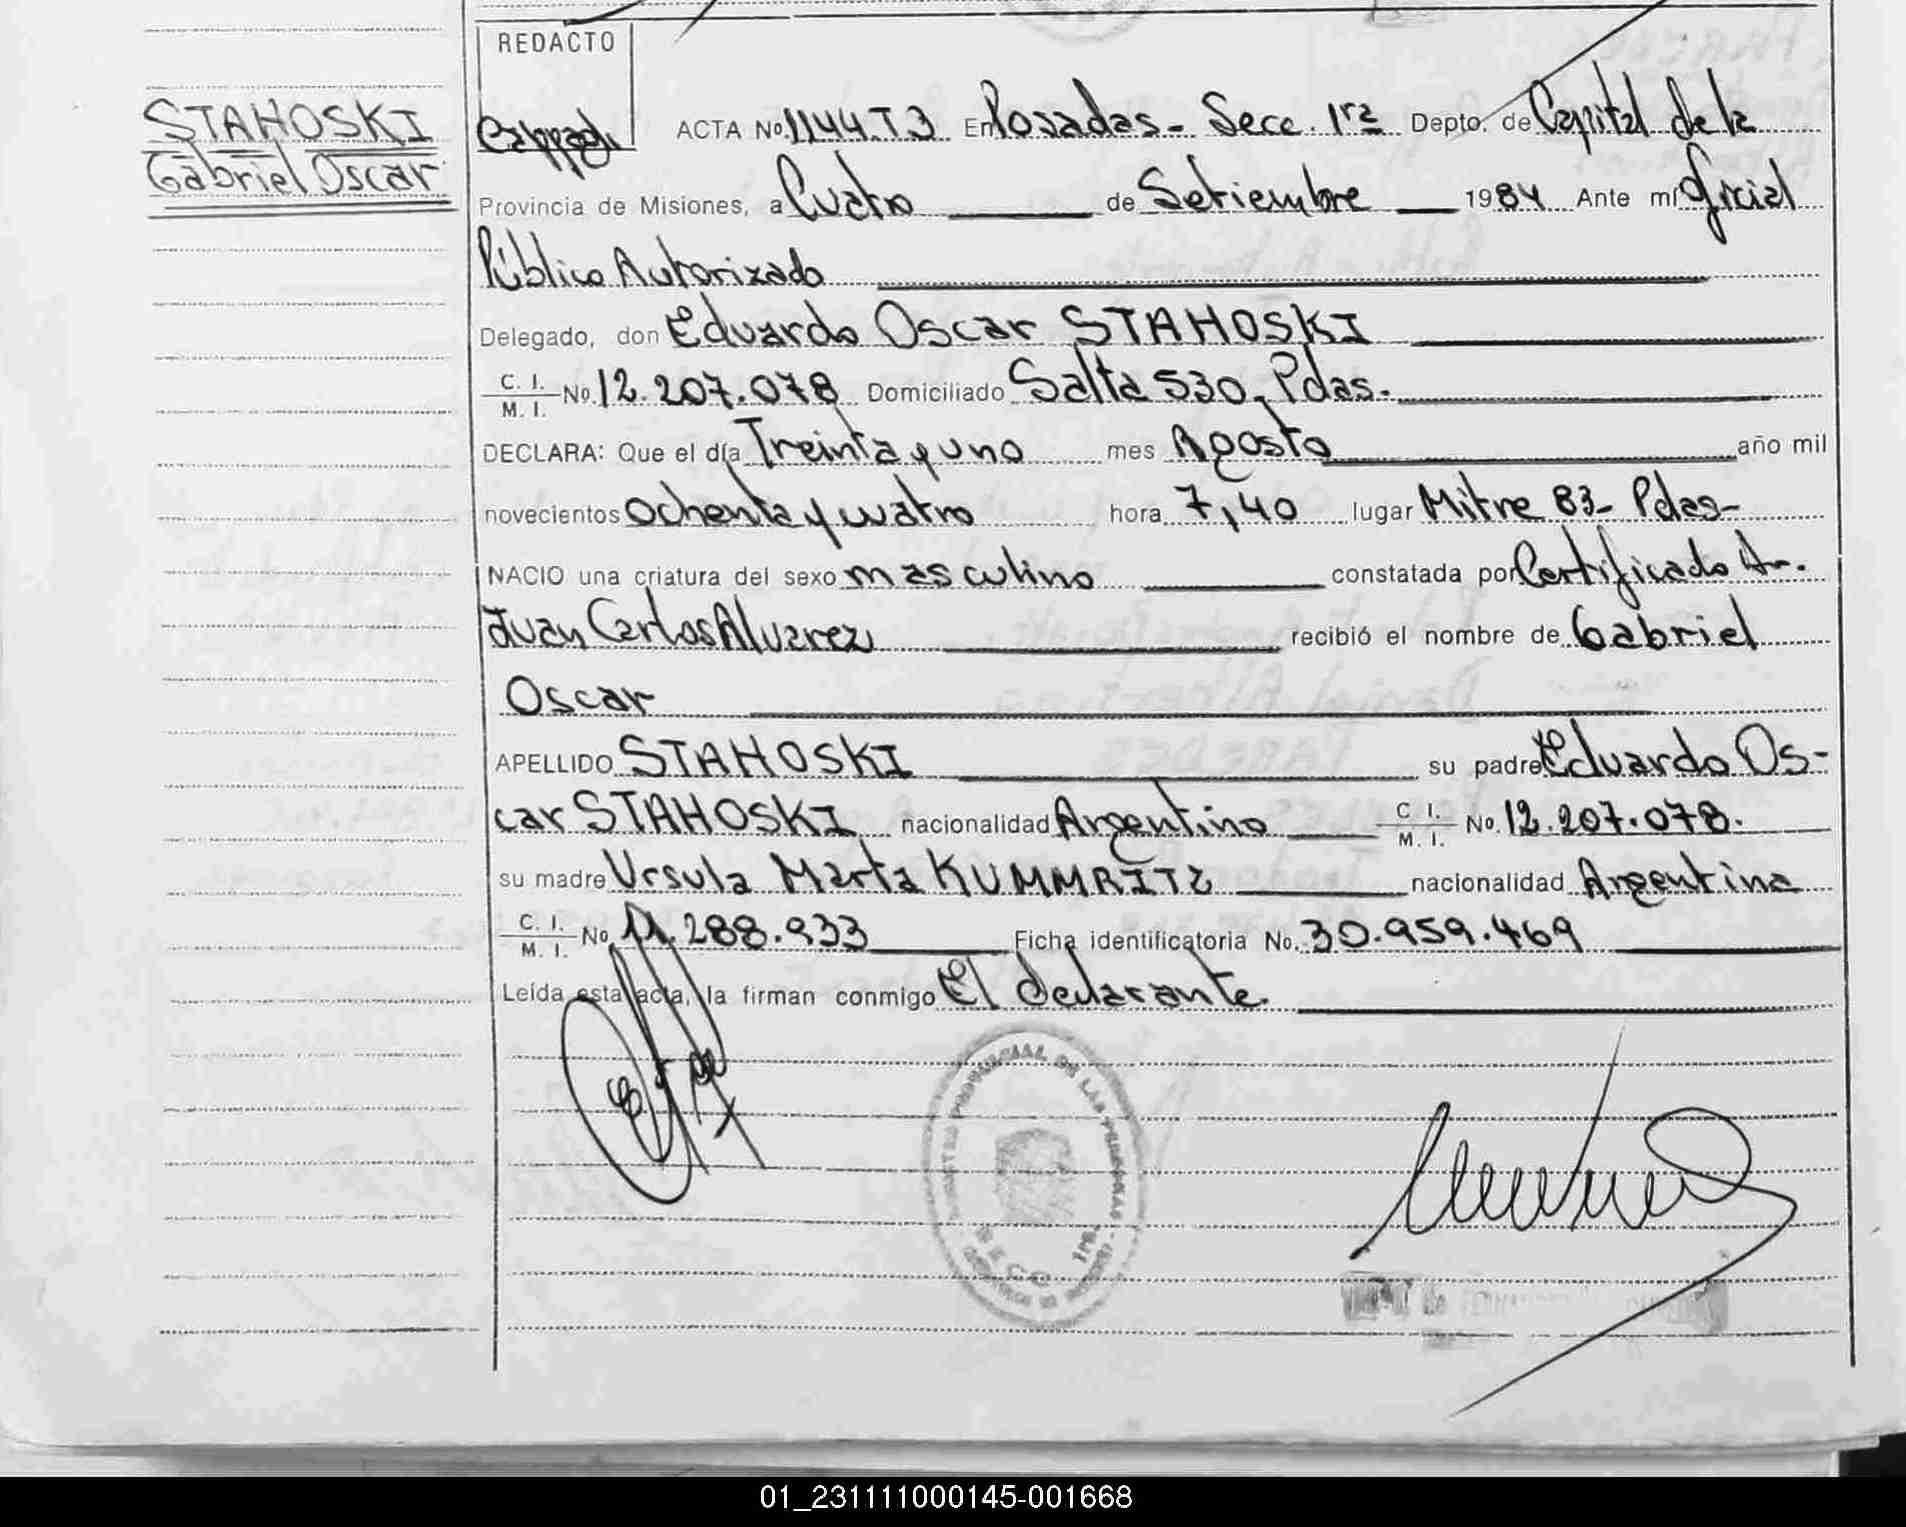 REDACTO
STAHOSKI
Gabriel Oscar
ACTA No. 1144 T3 En Posadas - Secc. 1ra Depto. de Capital de la
Provincia de Misiones, a Cuatro de Setiembre 1984 Ante mí Oficial
Público Autorizado
Delegado, don Eduardo Oscar STAHOSKI
C. I.
M. I. No. 12.207.078 Domiciliado Salta 530, Pdas.
DECLARA: Que el día Treinta y uno mes Agosto año mil
novecientos ochenta y cuatro hora 7,40 lugar Mitre 83- Pdas-
NACIO una criatura del sexo masculino constatada por Certificado
Juan Carlos Alvarez recibió el nombre de Gabriel
Oscar
APELLIDO STAHOSKI su padre Eduardo Os-
car STAHOSKI nacionalidad Argentino C. I.
M. I. No. 12.207.078.
su madre Ursula Marta KUMMRITZ nacionalidad Argentina
C. I.
M. I. No. 11.288.933 Ficha identificatoria No. 30.959.469
Leída esta acta, la firman conmigo El declarante.
PROVINCIAL DE LAS PERSONAS
01_231111000145-001668